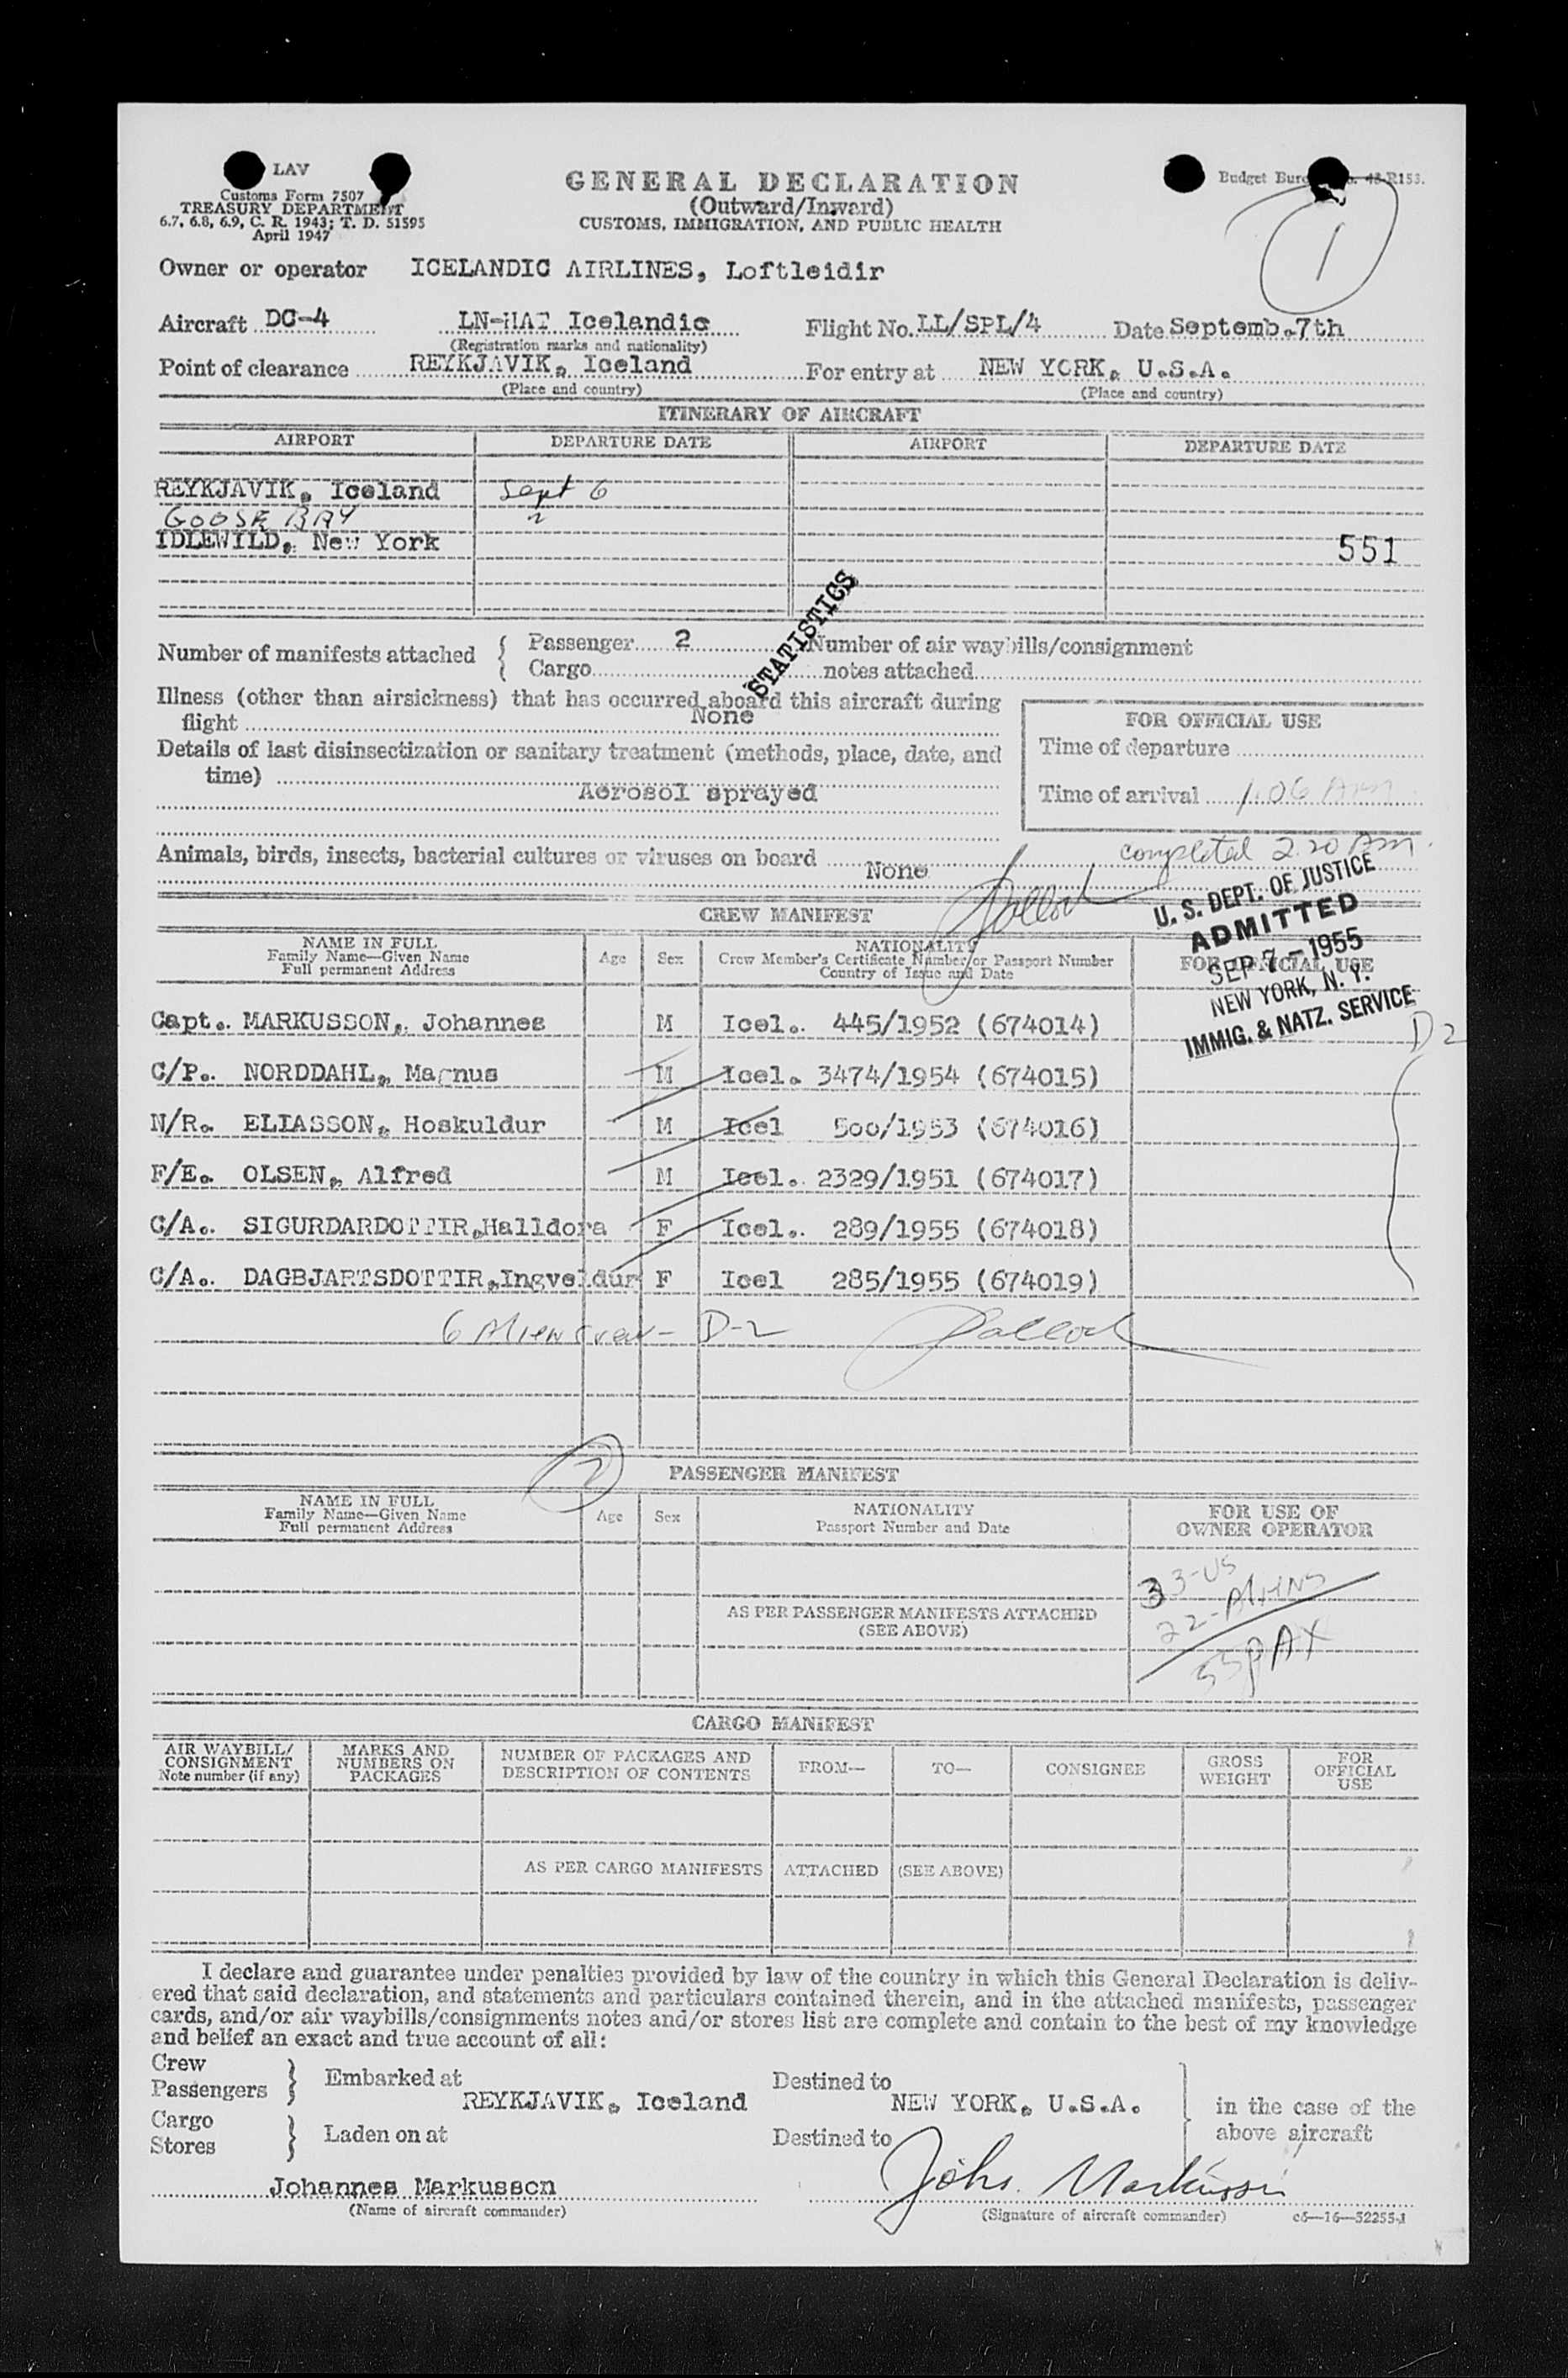 LAV
Customs Form 7507
TREASURY DEPARTMENT
6.7, 6.8, 6.9, C. R. 1943; T. D. 51595
April 1947
GENERAL DECLARATION
(Outward/Inward)
CUSTOMS, IMMIGRATION, AND PUBLIC HEALTH
Budget Bureau No. 43-R153.
1
Owner or operator ICELANDIC AIRLINES, Loftleidir
Aircraft DC-4 LN-HAT Icelandic Flight No. LL/SPL/4 Date Septemb.7th
(Registration marks and nationality)
Point of clearance REYKJAVIK, Iceland For entry at NEW YORK, U.S.A.
(Place and country) (Place and country)
ITINERARY OF AIRCRAFT
AIRPORT DEPARTURE DATE AIRPORT DEPARTURE DATE
REYKJAVIK, Iceland Sept 6
GOOSE BAY "
IDLEWILD, New York
551
STATISTICS
Number of manifests attached { Passenger 2 Number of air waybills/consignment
Cargo notes attached
Illness (other than airsickness) that has occurred aboard this aircraft during
flight None
FOR OFFICIAL USE
Details of last disinsectization or sanitary treatment (methods, place, date, and
time) Aerosol sprayed
Time of departure
Time of arrival 1.06 Am
completed 2.20 Am.
Animals, birds, insects, bacterial cultures or viruses on board None
U. S. DEPT. OF JUSTICE
ADMITTED
SEP 7 - 1955
NEW YORK, N. Y.
IMMIG. & NATZ. SERVICE
CREW MANIFEST
NAME IN FULL
Family Name—Given Name
Full permanent Address
Age
Sex
NATIONALITY
Crew Member's Certificate Number or Passport Number
Country of Issue and Date
FOR OFFICIAL USE
Capt. MARKUSSON, Johannes M Icel. 445/1952 (674014)
D2
C/P. NORDDAHL, Magnus M Icel. 3474/1954 (674015)
N/R. ELIASSON, Hoskuldur M Icel 500/1953 (674016)
F/E. OLSEN, Alfred M Icel. 2329/1951 (674017)
C/A. SIGURDARDOTTIR,Halldora F Icel. 289/1955 (674018)
C/A. DAGBJARTSDOTTIR,Ingveldur F Icel 285/1955 (674019)
6 Alien Crew - D-2
2
PASSENGER MANIFEST
NAME IN FULL
Family Name—Given Name
Full permanent Address
Age
Sex
NATIONALITY
Passport Number and Date
FOR USE OF
OWNER OPERATOR
33-US
22-Aliens
55 PAX
AS PER PASSENGER MANIFESTS ATTACHED
(SEE ABOVE)
CARGO MANIFEST
AIR WAYBILL/
CONSIGNMENT
Note number (if any)
MARKS AND
NUMBERS ON
PACKAGES
NUMBER OF PACKAGES AND
DESCRIPTION OF CONTENTS
FROM—
TO—
CONSIGNEE
GROSS
WEIGHT
FOR
OFFICIAL
USE
AS PER CARGO MANIFESTS ATTACHED (SEE ABOVE)
I declare and guarantee under penalties provided by law of the country in which this General Declaration is deliv-
ered that said declaration, and statements and particulars contained therein, and in the attached manifests, passenger
cards, and/or air waybills/consignments notes and/or stores list are complete and contain to the best of my knowledge
and belief an exact and true account of all:
Crew
Passengers } Embarked at REYKJAVIK, Iceland Destined to NEW YORK, U.S.A.
in the case of the
above aircraft
Cargo
Stores } Laden on at Destined to
Johannes Markusson Johs. Markússon
(Name of aircraft commander) (Signature of aircraft commander) c6—16—52255-1